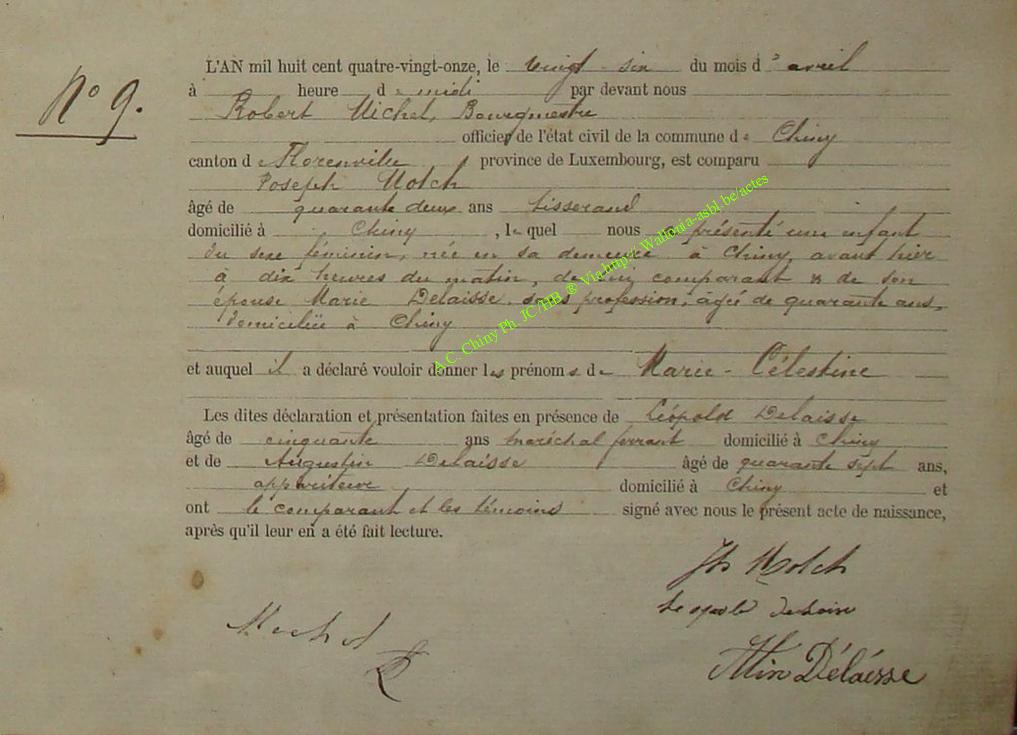 N° 9.
L'AN mil huit cent quatre-vingt-onze, le vingt-six du mois d'avril
à heure de midi par devant nous
Robert Michel, Bourgmestre
officier de l'état civil de la commune de Chiny
canton de Florenville, province de Luxembourg, est comparu
Joseph Molch
âgé de quarante deux ans tisserand
domicilié à Chiny, lequel nous a présenté un enfant
du sexe féminin, née en sa demeure à Chiny, avant hier
à dix heures du matin, de lui comparant & de son
épouse Marie Delaisse, sans profession, âgée de quarante ans,
domiciliée à Chiny
et auquel il a déclaré vouloir donner les prénoms de Marie-Célestine
Les dites déclaration et présentation faites en présence de Léopold Delaisse
âgé de cinquante ans maréchal ferrant domicilié à Chiny
et de Augustin Delaisse âgé de quarante sept ans,
appariteur domicilié à Chiny et
ont le comparant et les témoins signé avec nous le présent acte de naissance,
après qu'il leur en a été fait lecture.
Jh Molch
Michel R
Delaisse
A.C. Chiny Ph. JC/HB ® Via http://Wallonia-asbl.be/actes